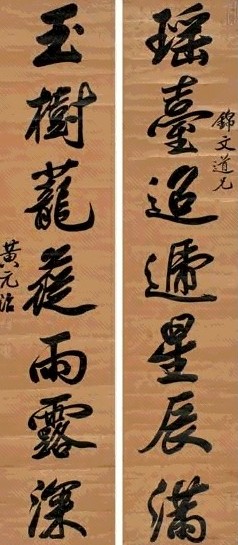 錦文道兄
瑶臺迢遞星辰滿
玉樹蘢蓯雨露深
黃元治